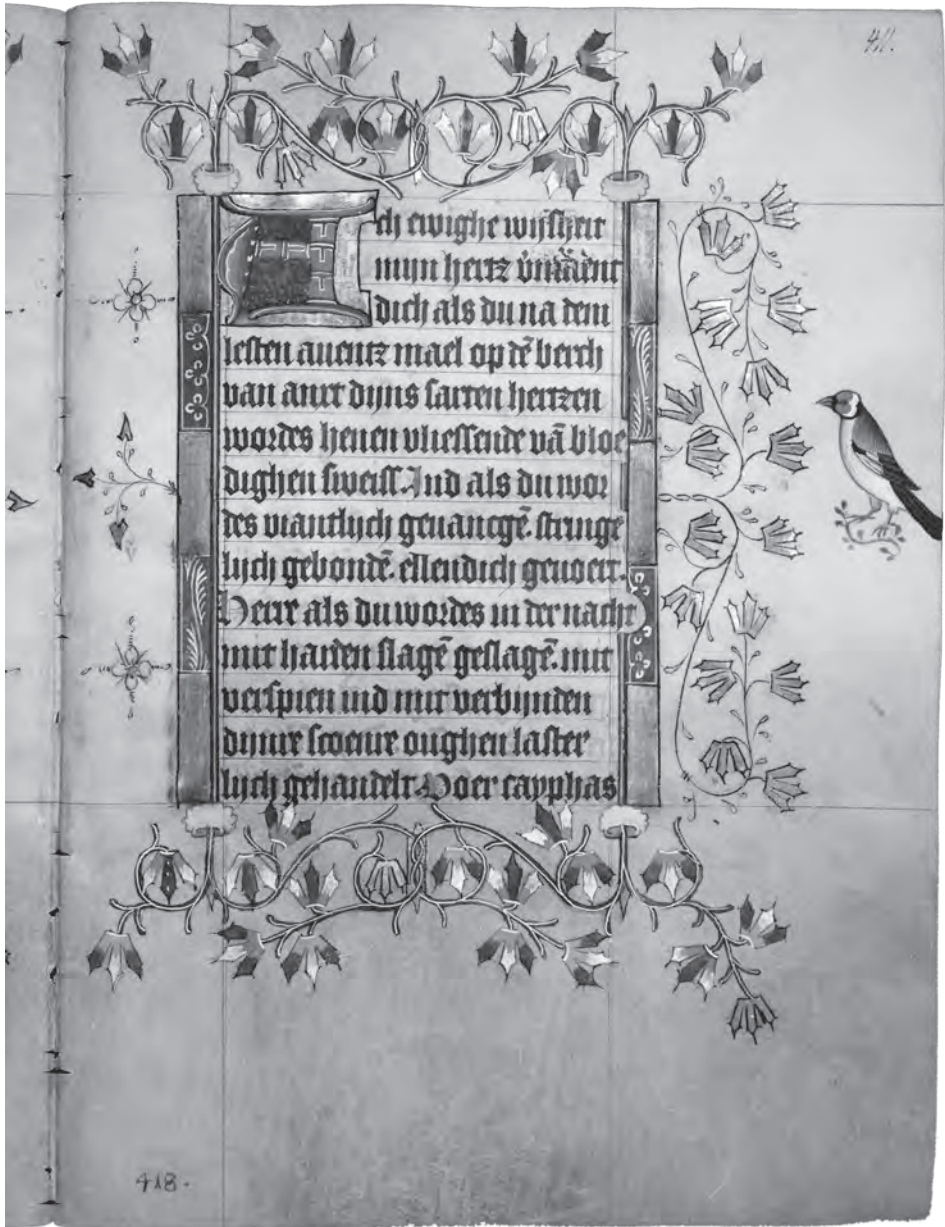 411.
Ach ewighe wijsheit
mijn hertz v̇mãent
dich als du na dem
lesten auentz mael op dẽ berch
van anxt dijns sarten hertzen
wordes henen vliessende vã bloe
dighen sweiss. Ind als du wor
des viantlijch geuancgẽ. strenge
lijch gebondẽ. ellendich geuoert.
Herre als du wordes in der nacht
mit harden slagẽ geslagẽ. mit
verspien ind mit verbijnden
dijnre scoenre oughen laster
lijch gehandelt. Voer cayphas
418.